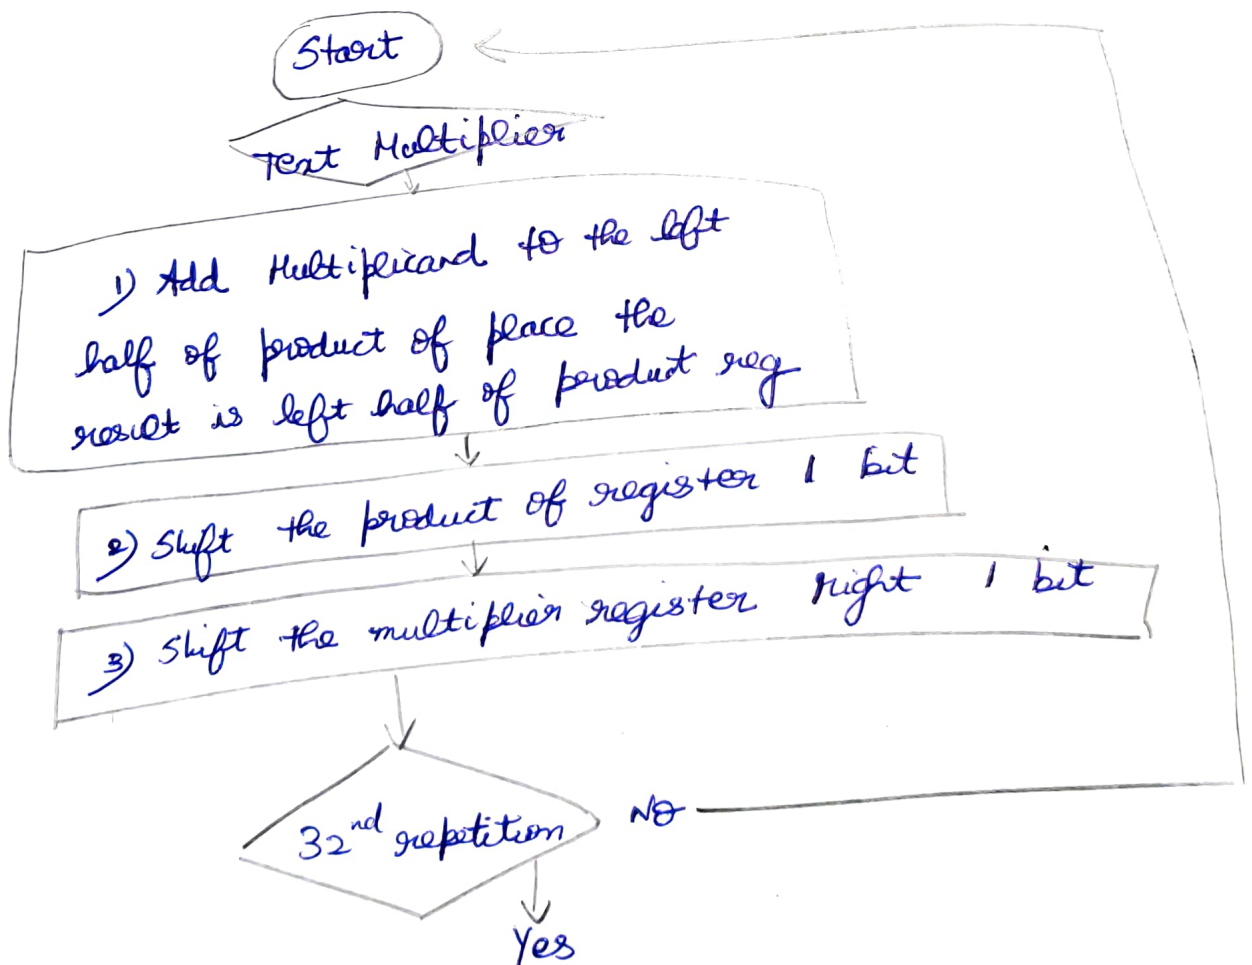 Start
Text Multiplier
1) Add Multiplicand to the left
half of product of place the
result is left half of product reg
2) Shift the product of register 1 bit
3) Shift the multiplier register right 1 bit
32nd repetition
NO
Yes